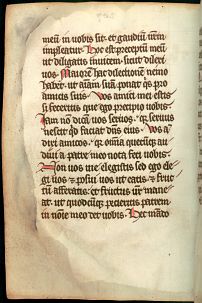 meū in vobis sit et gaudiū vr̄m
impleatur. Hoc est preceptū meū
ut diligatis invicem sicut dilexi
vos. Maiorem hac dilectionē nemo
habet ut aīam suā ponat q̄s pro
amicis suis Vos amici mei estis
si feceritis que ego precipio vobis.
Iam nō dicam vos servos. q̄r servus
nescit q̄d faciat dn̄s eius Vos aū
dixi amicos. q̄r omīa quecūq̄ au
divi a patre meo nota feci vobis
Non vos me elegistis sed ego ele
gi vos & posui vos ut eatis & fruc
tū afferatis et fructus vr̄ mane
at. ut quodcūq̄ petieritis patrem
in noīe meo det vobis. Hec mādo